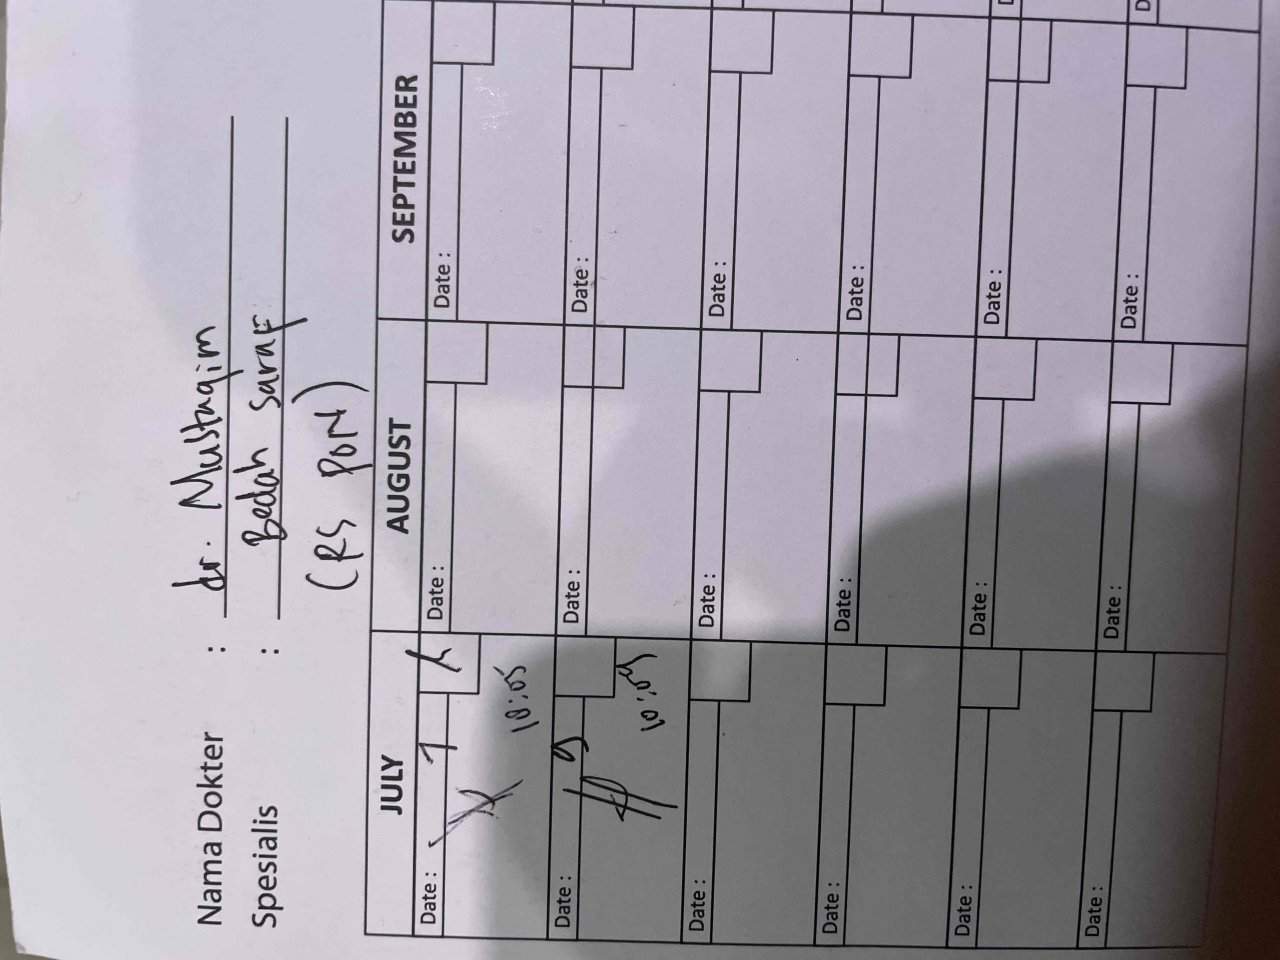 Nama Dokter : dr. Mustaqim
Spesialis : Bedah saraf
(RS PON)
JULY AUGUST SEPTEMBER
Date : 7 Date : Date :
10:05
Date : 9 Date : Date :
10:09
Date : Date : Date :
Date : Date : Date :
Date : Date : Date :
Date : Date : Date :